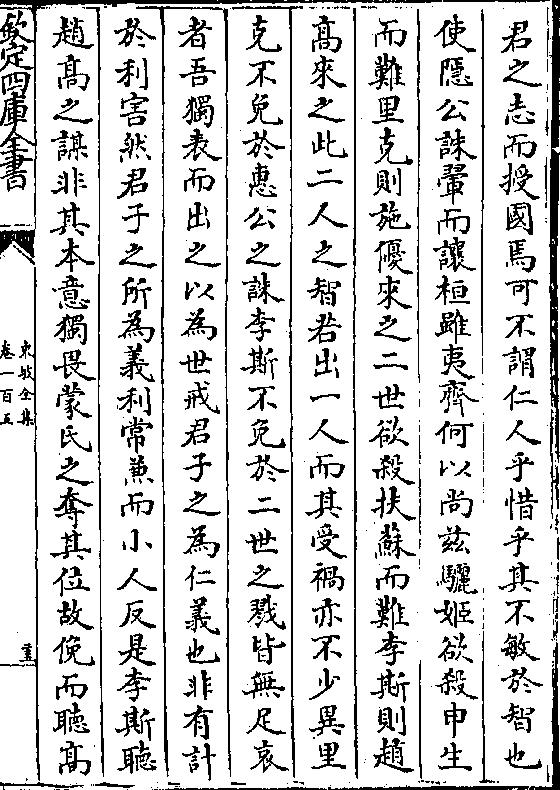 君之志而授國焉可不謂仁人乎惜乎其不敏於智也
使隱公誅翬而讓桓雖夷齊何以尚兹驪姬欲殺申生
而難里克則施優來之二世欲殺扶蘇而難李斯則趙
高來之此二人之智若出一人而其受禍亦不少異里
克不免於惠公之誅李斯不免於二世之戮皆無足哀
者吾獨表而出之以為世戒君子之為仁義也非有計
於利害然君子之所為義利常兼而小人反是李斯聽
趙高之謀非其本意獨畏蒙氏之奪其位故俛而聽高
欽定四庫全書
東坡全集
卷一百五